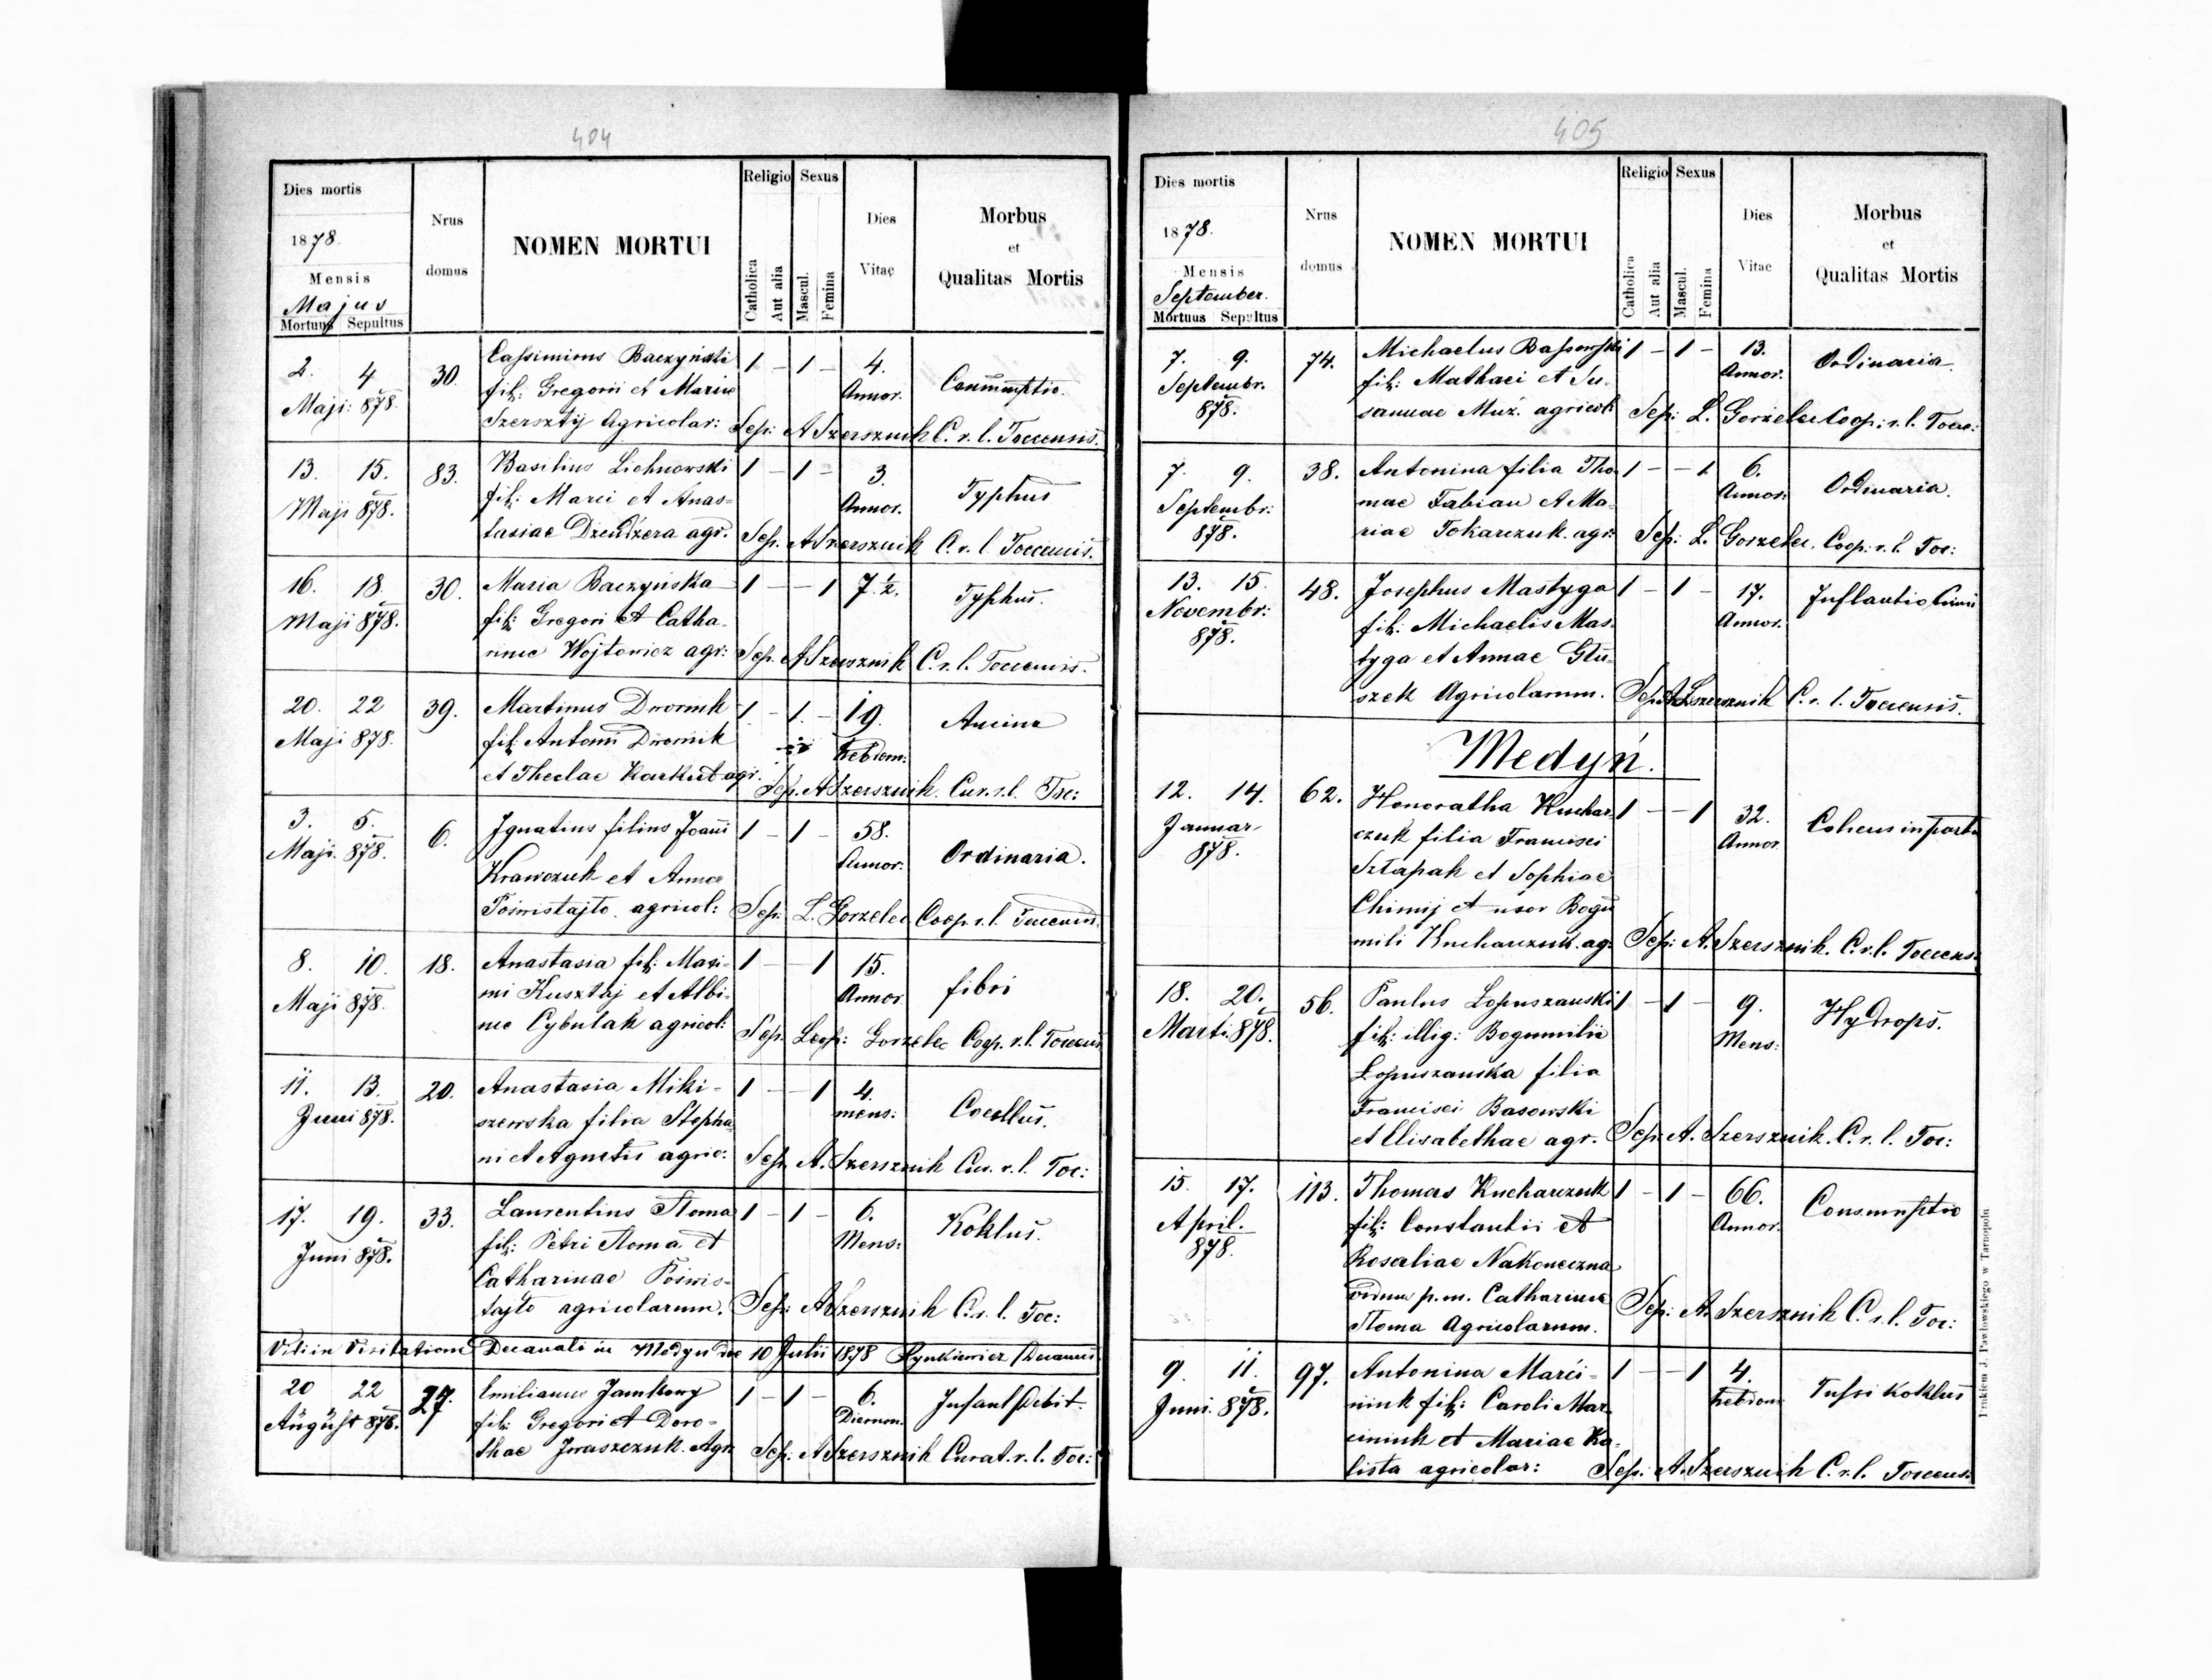 404
Dies mortis
1878.
Mensis
Majus
Mortuus Sepultus
Nrus domus
NOMEN MORTUI
Religio
Catholica
Aut alia
Sexus
Mascul.
Femina
Dies Vitae
Morbus
et
Qualitas Mortis
2. 4 30. Cassimirus Baczyński 1 - 1 - 4.
Maji: 878. fil: Gregorii et Mariae Annor. Consumptio.
Szersztij Agricolar: Sep: A Szersznik C. r. l. Toccensis.
13. 15. 83. Basilius Lichnowski 1 - 1 - 3.
Maji 878. fil: Marci et Anas= Annor. Typhus
tasiae Dzendzera agr. Sep. A Szersznik C. r. l. Toccensis.
16. 18. 30. Maria Baczyńska 1 - - 1 7 ½. Typhus.
Maji 878. fil: Gregori et Catha-
rinae Wojtowicz agr: Sep. A Szersznik C. r. l. Toccensis.
20. 22 39. Martinus Dwornik 1 - 1. - 19. Angina
Maji 878. fil: Antoni Dwornik hebdom:
et Theclae Karkut agr. Sep. A Szersznik. Cur. r. l. Toc:
3. 5. 6. Ignatius filius Joanni 1 - 1 - 58.
Maji. 878. Krawczuk et Annae Annor: Ordinaria.
Poświstajto agricol: Sep: L. Gorzelec Coop r. l. Toccensis.
8. 10. 18. Anastasia fil: Maxi- 1 - 1 15.
Maji 878. mi Kusztaj et Albi- Annor. fibri
nae Cybulak agricol: Sep. Leop: Gorzelec Coop. r. l. Toccensis
11. 13. 20. Anastasia Miki- 1 - - 1 4.
Juni 878. szewska filia Stepha mens: Cocllus.
ni et Agnetis agric: Sep. A. Szersznik Cur. r. l. Toc:
17. 19. 33. Laurentius Stoma 1 - 1 - 6. Koklus.
Juni 878. fil: Petri Stoma et Mens:
Catharinae Poświs-
tajto agricolarum. Sep: A Szersznik C. r. l. Toc:
Vidi in Visitatione Decanali in Medyn die 10 Julii 1878 Hynkiewicz Decanus
20 22 27. Emilianus Jamkowy 1 - 1 - 6. Infant Debit.
August 878. fil: Gregori et Doro- Dierum.
thae Iwaszczuk. Agr. Sep: A Szersznik Curat. r. l. Toc:
405
Dies mortis
1878.
Mensis
September.
Mortuus Sepultus
Nrus domus
NOMEN MORTUI
Religio
Catholica
Aut alia
Sexus
Mascul.
Femina
Dies Vitae
Morbus
et
Qualitas Mortis
7. 9. 74. Michaelus Bassowski 1 - 1 - 13. Ordinaria
Septembr. fil: Mathaei et Su- Annor.
878. sannae Muż. agricol: Sep: L. Gorzelec Coop: r. l. Tocc:
7. 9. 38. Antonina filia Tho 1 - - 1. 6. Ordinaria.
Septembr: mae Fabian et Ma- Annor:
878. riae Tokarczuk. agr: Sep: L. Gorzelec. Coop: r. l. Toc:
13. 15. 48. Josephus Mastyga 1 - 1 - 17. Inflantio
Novembr: fil: Michaelis Mas- Annor.
878. tyga et Annae Glu-
szek Agricolarum. Sep: A Szersznik C. r. l. Toccensis.
Medyń.
12. 14. 62. Honoratha Kuchar- 1 - - 1 32. in partu
Januar czuk filia Francisci Annor
878. Sztapak et Sophiae
Chimij et uxor Bogu
mili Kucharczuk. agr. Sep: A. Szersznik. C. r. l. Toccens.
18. 20. 56. Paulus Lopuszanski 1 - 1 - 9. Hydrops.
Marti. 878. fil: illig: Bogumilie Mens:
Lopuszanska filia
Francisci Basowski
et Elisabethae agr. Sep. A. Szersznik. C. r. l. Toc:
15. 17. 113. Thomas Kucharczuk 1 - 1 - 66. Consumptio
April. fil: Constantii et Annor.
878. Rosaliae Nakoneczna
viduus p. m. Catharinae
Stoma Agricolarum. Sep: A. Szersznik C. r. l. Toc:
9. 11. 97. Antonina Marci- 1 - - 1 4. Tussi Koklus
Juni. 878. niuk fil: Caroli Mar- hebdom
ciniuk et Mariae Ka-
lista agricolar: Sep: A. Szersznik C. r. l. Toccens.
Drukiem J. Pawłowskiego w Tarnopolu